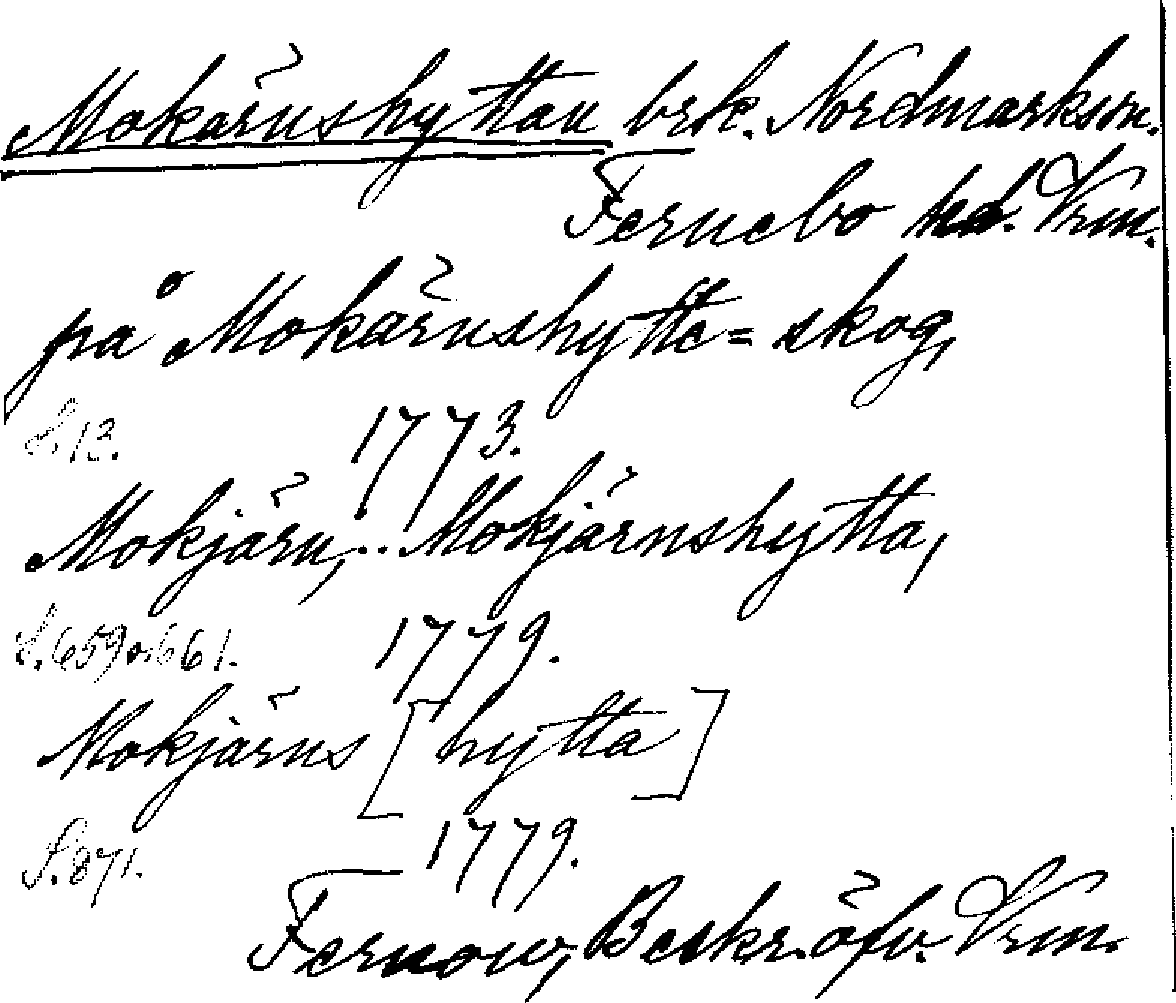 Mokärnshyttan brk. Nordmarks sn.
Fernebo hd. Vrm.
på Mokärnshytte=skog,
S. 13. 1773.
Mokjärn,.. Mokjärnshytta,
S. 659 o. 661. 1779.
Mokjärns [hytta]
S. 871. 1779.
Fernow, Beskr. öfv. Vrm.